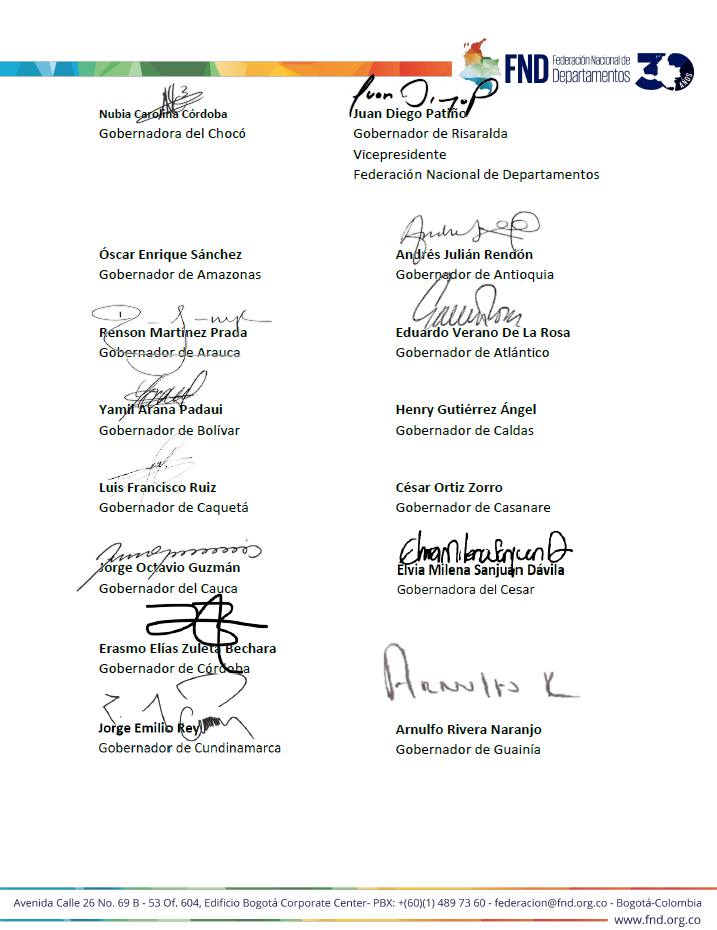 FND Federación Nacional de
Departamentos
30 AÑOS
Nubia Carolina Córdoba
Gobernadora del Chocó
Juan Diego
Juan Diego Patiño
Gobernador de Risaralda
Vicepresidente
Federación Nacional de Departamentos
Óscar Enrique Sánchez
Gobernador de Amazonas
Andrés Julián Rendón
Gobernador de Antioquia
Renson Martínez Prada
Gobernador de Arauca
Eduardo Verano De La Rosa
Gobernador de Atlántico
Yamil Arana Padaui
Gobernador de Bolívar
Henry Gutiérrez Ángel
Gobernador de Caldas
Luis Francisco Ruiz
Gobernador de Caquetá
César Ortiz Zorro
Gobernador de Casanare
Jorge Octavio Guzmán
Gobernador del Cauca
Elvia Milena Sanjuán Dávila
Gobernadora del Cesar
Erasmo Elías Zuleta Bechara
Gobernador de Córdoba
Jorge Emilio Rey
Gobernador de Cundinamarca
Arnulfo R
Arnulfo Rivera Naranjo
Gobernador de Guainía
Avenida Calle 26 No. 69 B - 53 Of. 604, Edificio Bogotá Corporate Center- PBX: +(60)(1) 489 73 60 - federacion@fnd.org.co - Bogotá-Colombia
www.fnd.org.co